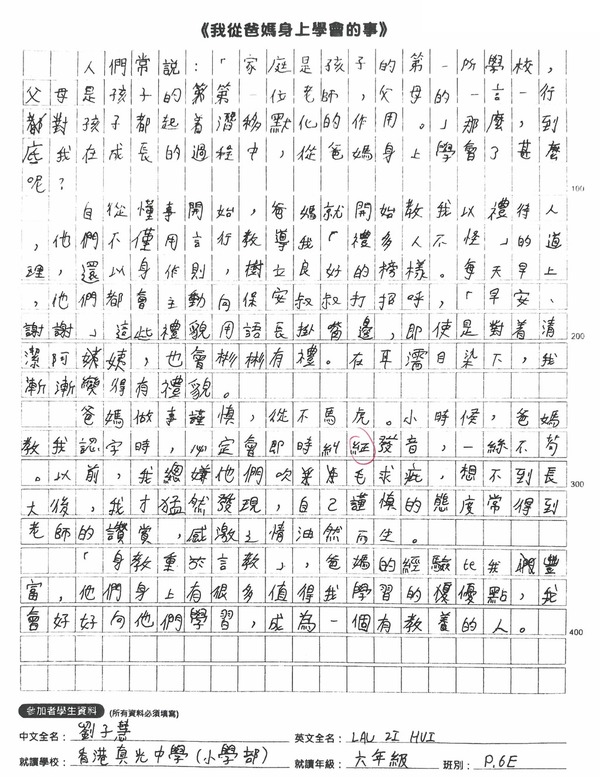 《我從爸媽身上學會的事》
人們常說：「家庭是孩子的第一所學校，
父母是孩子的第一位老師，父母的一言一行
都對孩子都起着潛移默化的作用。」那麼，到
底我在成長的過程中，從爸媽身上學會了甚麼
呢？
100
自從懂事開始，爸媽就開始教我以禮待人
，他們不僅用言行教導我「禮多人不怪」的道
理，還以身作則，樹立良好的榜樣。每天早上
，他們都會主動向保安叔叔打招呼，「早安、
謝謝」這些禮貌用語長掛嘴邊，即使是對着清
200
潔阿姨姨，也會彬彬有禮。在耳濡目染下，我
漸漸變得有禮貌。
爸媽做事謹慎，從不馬虎。小時候，爸媽
教我認字時，必定會即時糾經發音，一絲不苟
。以前，我總嫌他們吹毛求疵，想不到長
300
大後，我才猛然發現，自己謹慎的態度常得到
老師的讚賞，感激之情油然而生。
「身教重於言教」，爸媽的經驗比我們豐
富，他們身上有很多值得我學習的優點，我
會好好向他們學習，成為一個有教養的人。
400
參加者學生資料 (所有資料必須填寫)
中文全名：劉子慧 英文全名：LAU ZI HUI
就讀學校：香港真光中學(小學部) 就讀年級：六年級 班別：P.6E